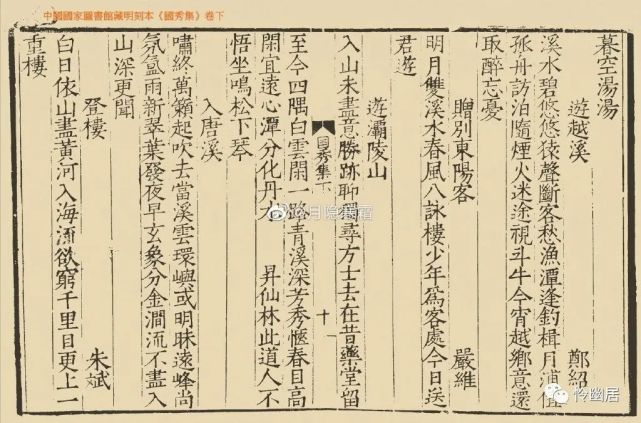 中國國家圖書館藏明刻本《國秀集》卷下
暮空湯湯
遊越溪 鄭紹
溪水碧悠悠猿聲斷客愁漁潭逢釣楫月浦值
孤舟訪泊隨煙火迷途視斗牛今宵越鄉意還
取醉忘憂
贈別東陽客 嚴維
明月雙溪水春風八詠樓少年爲客處今日送
君遊
遊灞陵山
入山未盡意勝跡聊獨尋方士去在昔藥堂留
國秀集下 十一
至今四隅白雲閑一路青溪深芳秀愜春目高
閑宜遠心潭分化丹水 昇仙林此道人不
悟坐鳴松下琴
入唐溪
嘯終萬籟起吹去當溪雲環嶼或明昧遠峰尚
氛氳雨新翠葉發夜早玄象分金澗流不盡入
山深更聞
登樓 朱斌
白日依山盡黃河入海流欲窮千里目更上一
重樓
怜幽居